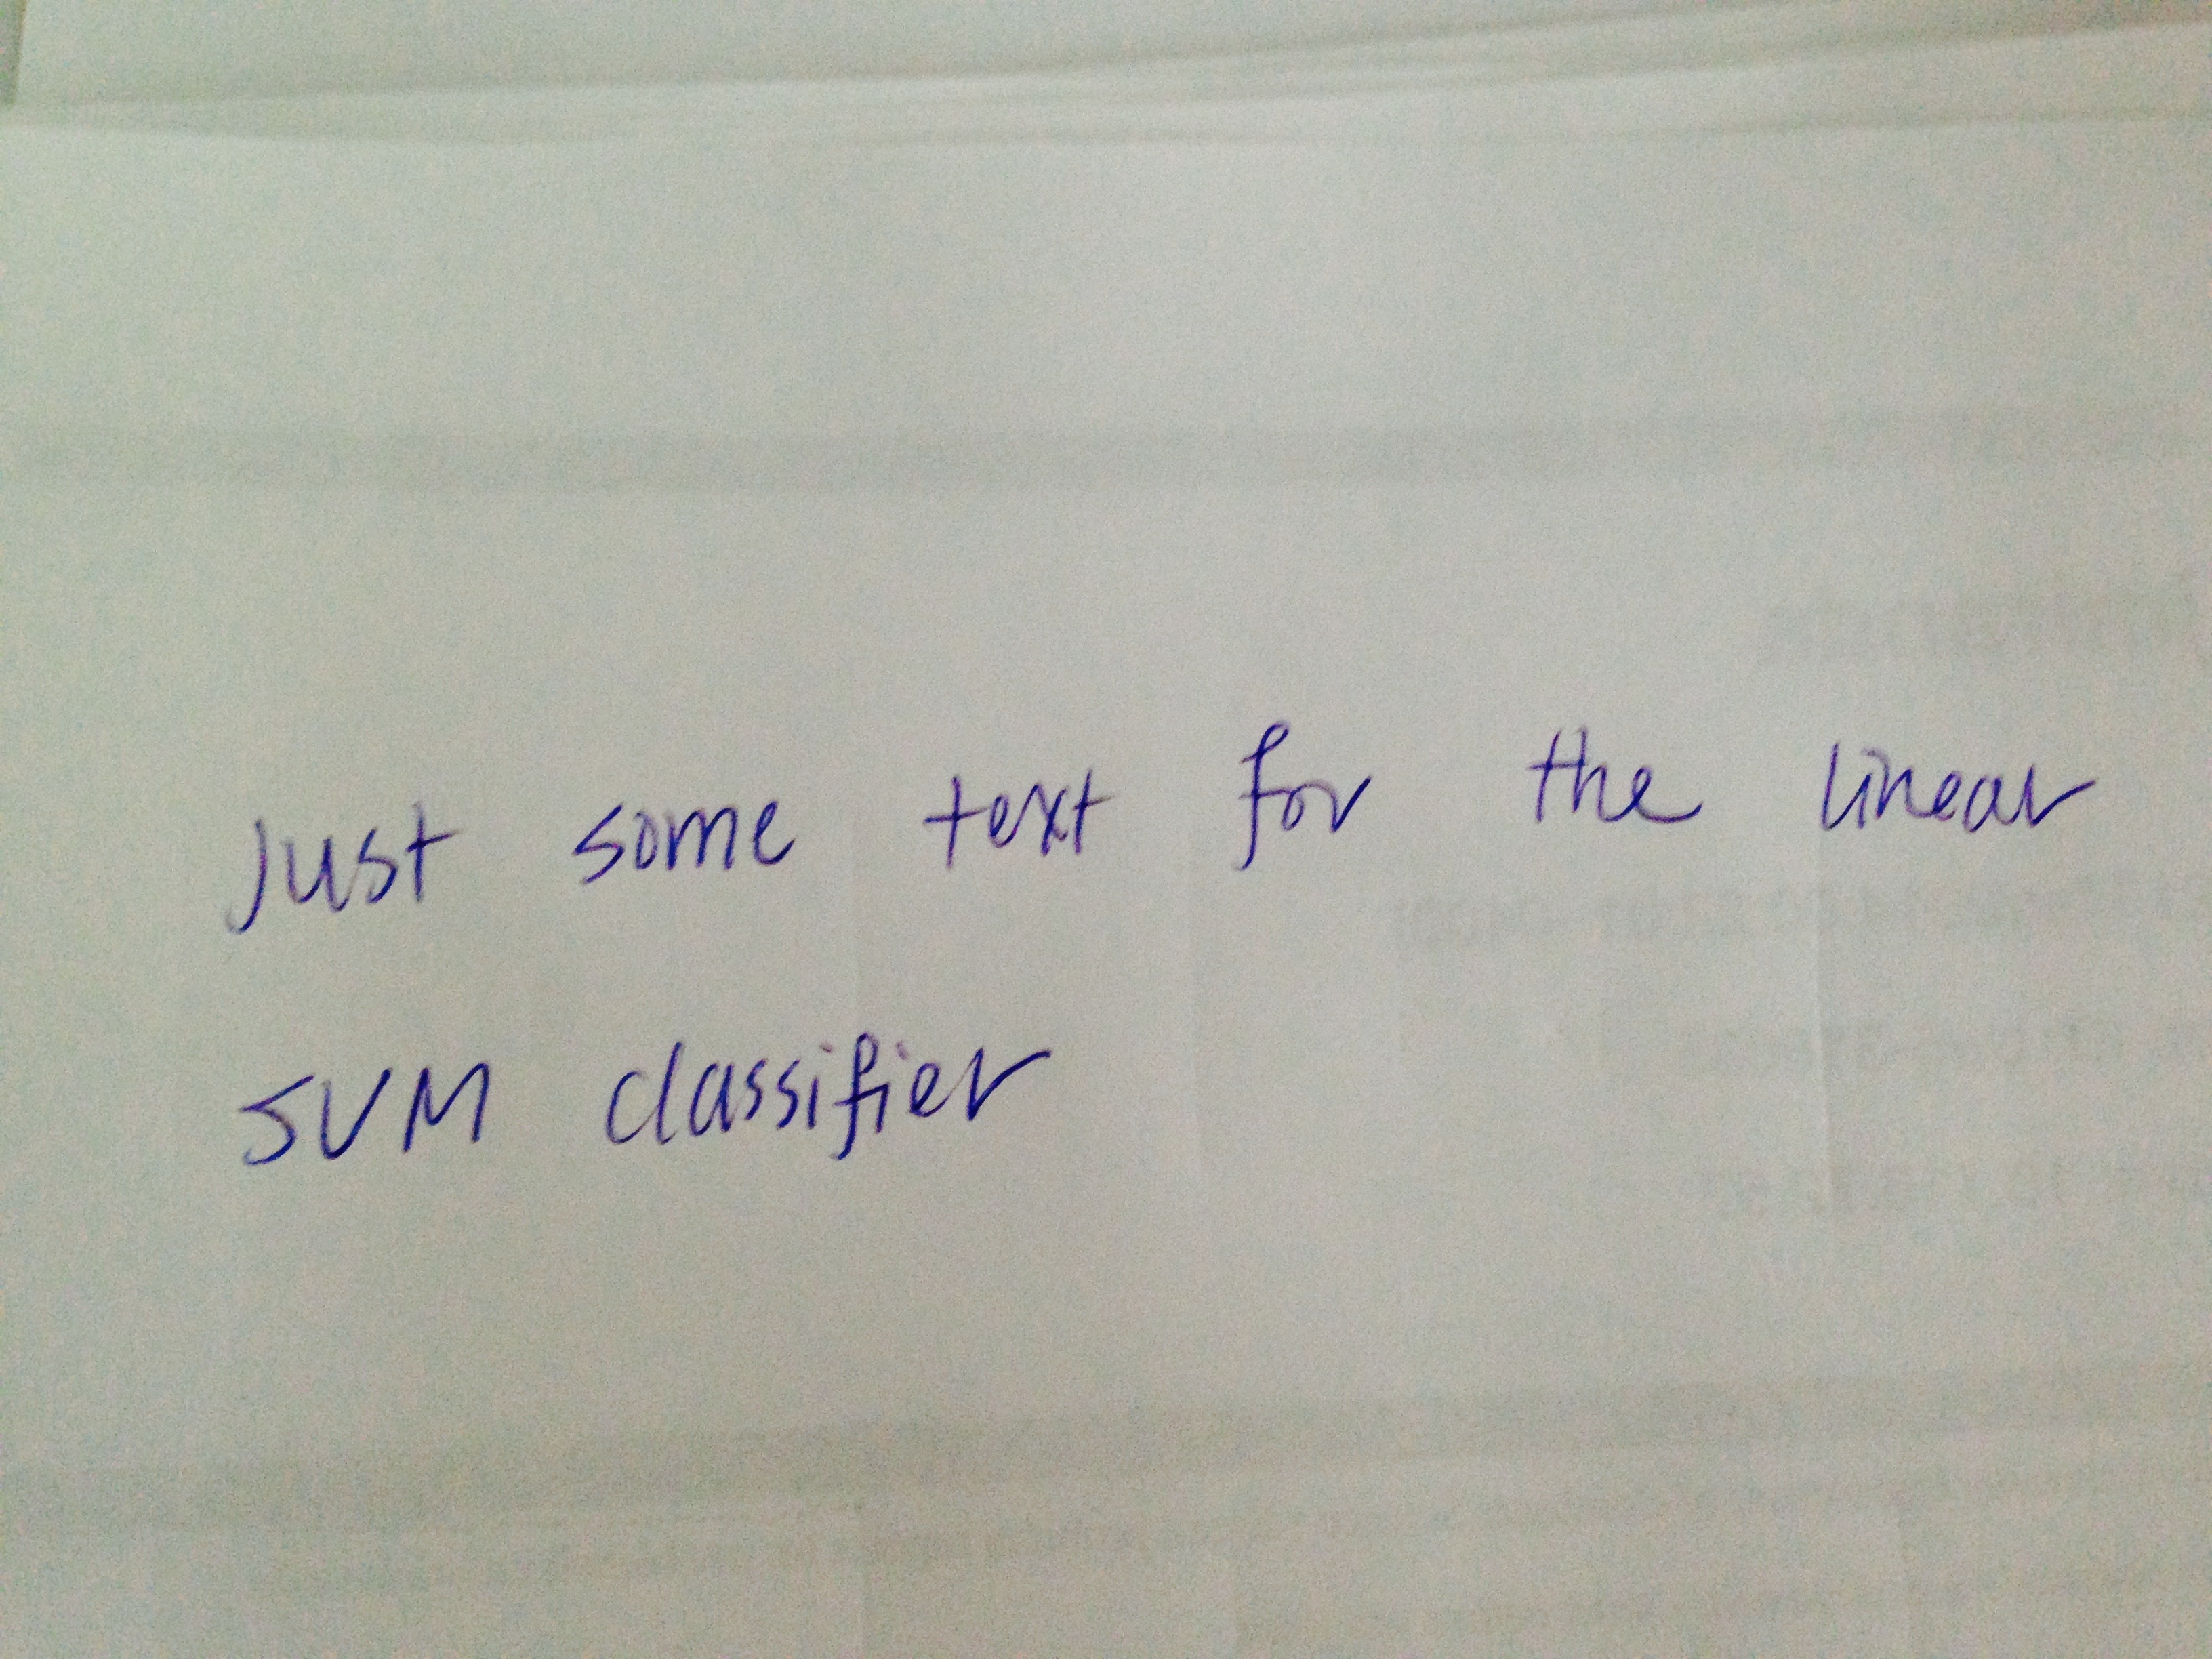 Just some text for the linear
SVM classifier